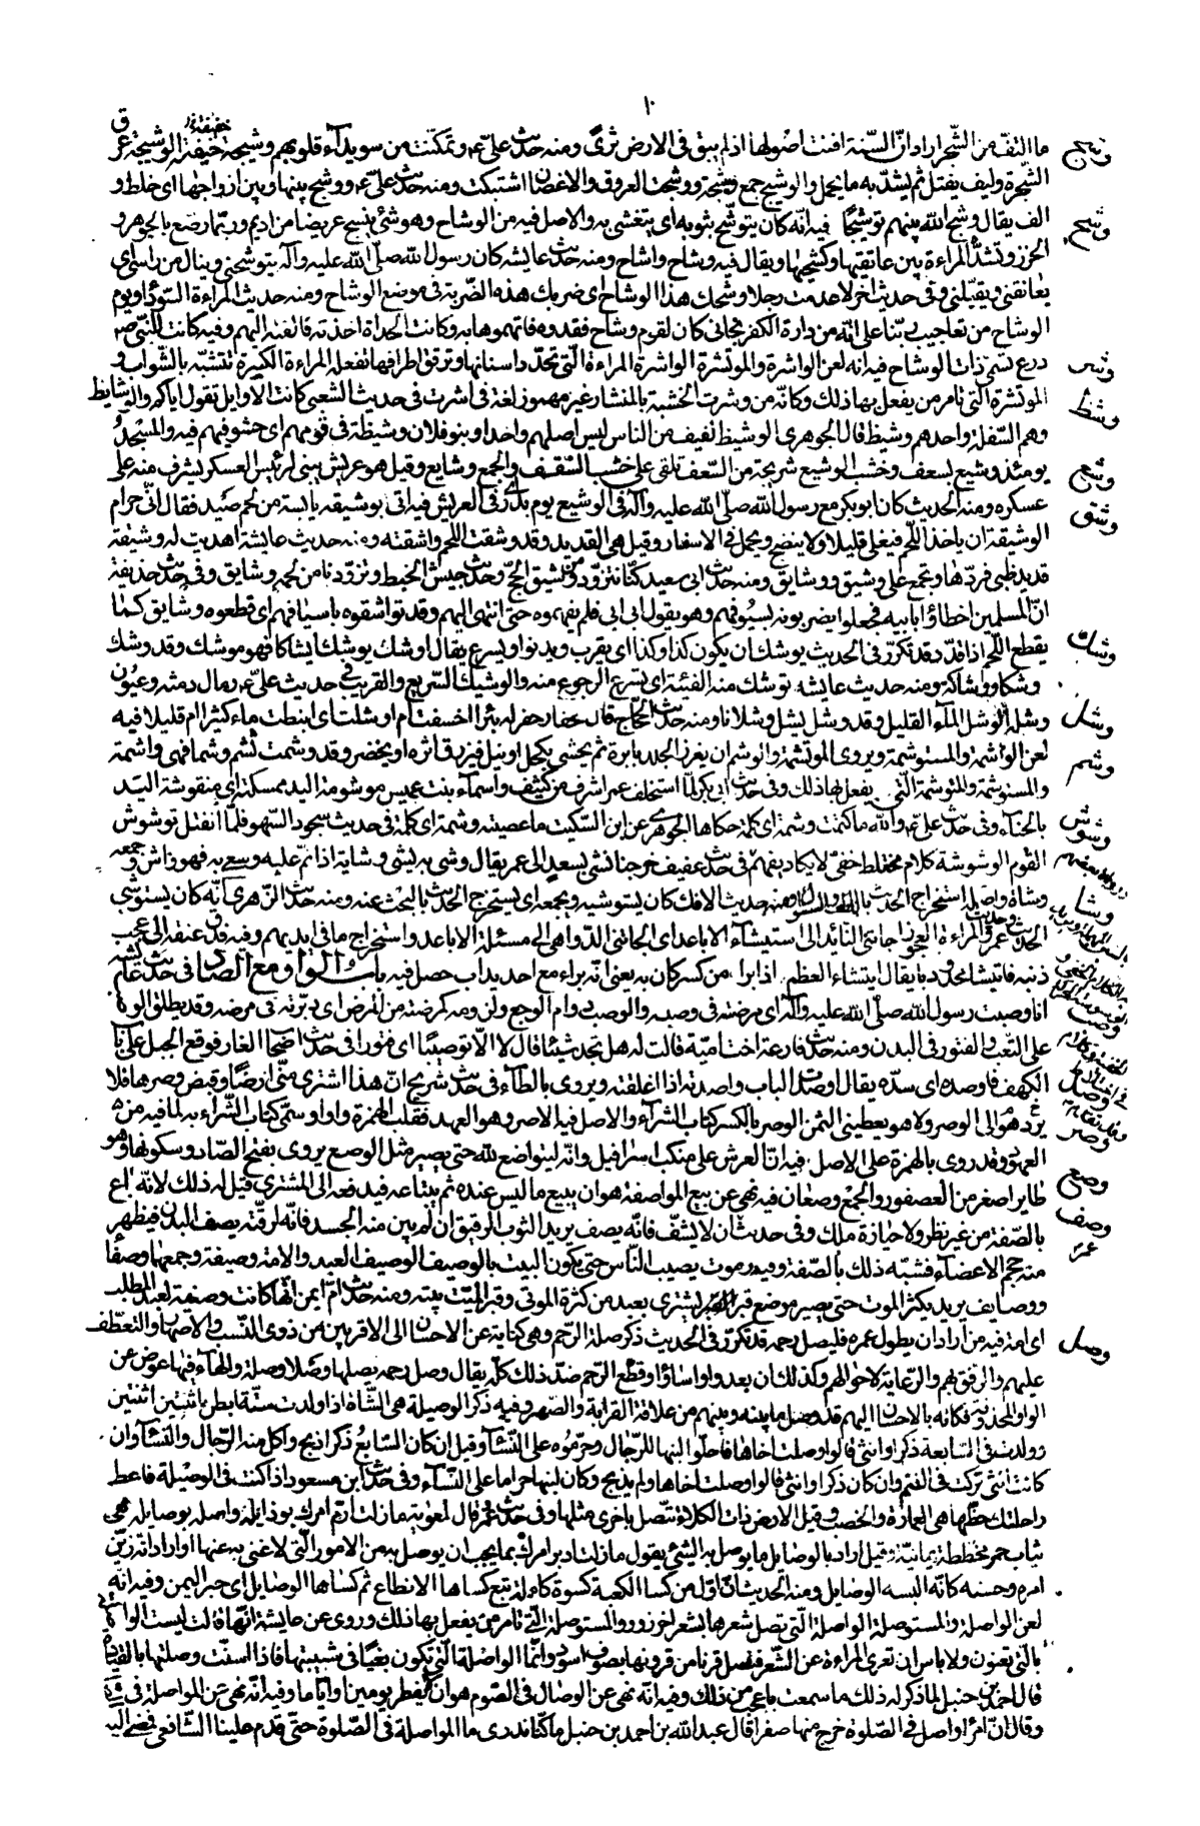 ١٠
وشج
ما التفّ من الشّجر اراد انّ السّنة افنت اصولها اذ لم يبق فى الارض ثرىً ومنه حديث علىّ ع وتمكّنت من سويداء قلوبهم وشيجة خيفته الوشيجة عرق
الشّجرة وليف يفتل ثم يشدّ به ما يحمل والوشيج جمع وشيجة ووشجت العروق والاغصان اشتبكت ومنه حديث علىّ ع ووشّج بينها وبين ازواجها اى خلط و
وشح
الف يقال وشّج الله بينهم توشيجًا فيه انّه كان يتوشّح بثوبه اى يتغشى به والاصل فيه من الوشاح وهو شئ ينسج عريضا من اديم وربّما رصّع بالجوهر و
الخرز وتشدّ المراءة بين عاتقيها وكشحيها ويقال فيه وشاح واشاح ومنه حديث عايشه كان رسول الله صلّى الله عليه وآله يتوشّحنى وينال من راسى اى
يعانقنى ويقبّلنى وفى حديث اخر لا عدمت رجلا وشحك هذا الوشاح اى ضربك هذه الضّربة فى موضع الوشاح ومنه حديث المراءة السّوداء ويوم
الوشاح من تعاجيب ربّنا على انّه من دارة الكفر نجانى كان لقوم وشاح ففقدوه فاتهموها به وكانت الحداة اخذته فالقته اليهم وفيه كانت للنّبى ص
وشر
درع تسمى ذات الوشاح فيه انه لعن الواشرة والموتشرة الواشرة المراءة الّتى تحدّد اسنانها وترقق اطرافها تفعله المراءة الكبيرة تتشبّه بالشّواب و
وشظ
الموتشرة الّتى تامر من يفعل بها ذلك وكانّه من وشرت الخشبة بالمنشار غير مهموز لغة فى اشرت فى حديث الشعبى كانت الاوايل تقول اياكم والوشايظ
وهم السّفلة واحدهم وشيظ قال الجوهرى الوشيظ لفيف من الناس ليس اصلهم واحدا وبنو فلان وشيظة فى قومهم اى حشو فيهم فيه والمسجد
وشع
يومئذ وشيع بسعف وخشب الوشيع شريجة من السّعف تلقى على خشب السّقف والجمع وشايع وقيل هو عريش يبنى لرئيس العسكر يشرف منه على
وشق
عسكره ومنه الحديث كان ابو بكر مع رسول الله صلّى الله عليه وآله فى الوشيع يوم بدر اى فى العريش فيه اتى بوشيقة يابسة من لحم صيد فقال انّى حرام
الوشيقة ان ياخذ اللّحم فيغلى قليلا ولا ينضج ويحمل فى الاسفار وقيل هى القديد وقد وشقت اللحم واشقته ومنه حديث عايشة اهديت له وشيقة
قديد ظبى فردّها وتجمع على وشيق ووشايق ومنه حديث ابى سعيد كنّا نتزوّد من وشيق الحج وحديث جيش الخبط وتزوّدنا من لحمه وشايق وفى حديث حذيفة
انّ المسلمين اخطاؤا بابيه فجعلوا يضربونه بسيوفهم وهو يقول ابى ابى فلم يفهموه حتى انتهى اليهم وقد تواشقوه باسيافهم اى قطعوه وشايق كما
وشك
يقطع اللّحم اذا قدّد قد تكرّر فى الحديث يوشك ان يكون كذا وكذا اى يقرب ويدنو او يسرع يقال اوشك يوشك ايشاكا فهو موشك وقد وشك
وشكا ووشاكة ومنه حديث عايشه توشك منه الفيئة اى تسرع الرجوع منه والوشيك السّريع والقريب فى حديث علىّ ع رمال دمثه وعيون
وشل
وشلة الوشل الماء القليل وقد وشل يشل وشلانا ومنه حديث الحجّاج قال لحفار حفر له بئرا اخسفت ام اوشلت اى انبطت ماء كثيرا ام قليلا فيه
وشم
لعن الواشمة والمستوشمة ويروى الموتشمة والوشم ان يغرز الجلد بابرة ثم يحشى بكحل او نيل فيزرق اثره او يخضر وقد وشمت تشم وشما فهى واشمة
والمستوشمة والموتشمة الّتى يفعل بها ذلك وفى حديث ابى بكر لما استخلف عمر اشرف من كنيف واسماء بنت عميس موشومة اليد ممسكته اى منقوشة اليد
وشوش
بالحنّاء وفى حديث علىّ ع والله ما كتمت وشمة اى كلمة حكاها الجوهرى عن ابن السّكيت ما عصيته وشمة اى كلمة فى حديث سجود السّهو فلمّا انفتل توشوش
القوم الوشوشة كلام مختلط خفىّ لا يكاد يفهم فى حديث عفيف خرجنا نشى بسعد الى عمر يقال وشى به يشى وشاية اذا نمّ عليه وسعى به فهو واش وجمعه
وشا
وشاة واصله استخراج الحديث ومنه حديث الافك كان يستوشيه ويجمعه اى يستخرج الحديث بالبحث عنه ومنه حديث الزّهرى انّه كان يستوشى
الحديث وحديث عمر والمراءة العجوز جاءتنى النّائد الى استيشاء الاباعد اى الجاتنى الدّواهى الى مسئلة الاباعد واستخراج ما فى ايديهم وفيه فدقّ عنقه الى عجب
ذنبه فايتشا محدودبا يقال ايتشاء العظم اذا برا من كسر كان به يعنى انّه براء مع احديداب حصل فيه باب الواو مع الصّاد فى حديث عايشه
وصب
انا وصبت رسول الله صلّى الله عليه وآله اى مرّضته فى وصبه والوصب دوام الوجع ولزومه كمرضته من المرض اى دبرّته فى مرضه وقد يطلق الوصب
على التّعب والفتور فى البدن ومنه حديث فارعة اخت اميّة قالت له هل تجد شيئا قال لا الّا توصيبًا اى فتورا فى حديث اصحاب الغار فوقع الجبل على باب
وصد
الكهف فاوصده اى سدّه يقال اوصدت الباب واصدته اذا اغلقته ويروى بالطّاء فى حديث شريح انّ هذا اشترى منّى ارضًا وقبض وصرها فلا
وصر
يردّ هو الى الوصر ولا هو يعطينى الثمن الوصر بالكسر كتاب الشراء والاصل فيه الاصر وهو العهد فقلب الهمزة واوا وسمّى كتاب الشّراء به لما فيه من
العهود وقد روى بالهمزة على الاصل فيه انّ العرش على منكب اسرافيل وانّه ليتواضع لله حتى يصير مثل الوصع يروى بفتح الصّاد وسكونها وهو
وصع
طاير اصغر من العصفور والجمع وصعان فيه نهى عن بيع المواصفة هو ان يبيع ما ليس عنده ثم يبتاعه فيدفعه الى المشترى قيل له ذلك لانّه باع
وصف
بالصّفة من غير نظر ولا حيازة ملك وفى حديث ان لا يشفّ فانّه يصف يريد الثوب الرقيق ان لم يبن منه الجسد فانّه لرقّته يصف البدن فيظهر
عمر
منه حجم الاعضاء فشبّه ذلك بالصّفة وفيه وموت يصيب النّاس حتى يكون البيت بالوصيف الوصيف العبد والامة وصيفة وجمعها وصفا
ووصايف يريد يكثر الموت حتى يصير موضع قبر يشترى بعبد من كثرة الموتى وقبر الميّت بيته ومنه حديث امّ ايمن انّها كانت وصيفة لعبد المطلب
وصل
اى امة فيه من اراد ان يطول عمره فليصل رحمه قد تكرّر فى الحديث ذكر صلة الرّحم وهى كناية عن الاحسان الى الاقربين من ذوى النّسب والاصهار والتعطّف
عليهم والرّفق بهم والرّعاية لاحوالهم وكذلك ان بعدوا واساؤا وقطع الرّحم ضدّ ذلك كلّه يقال وصل رحمه يصلها وصلا وصلة والهاء فيها عوض عن
الواو المحذوفة فكانه بالاحسان اليهم قد وصل ما بينه وبينهم من علاقة القرابة والصّهر وفيه ذكر الوصيلة هى الشّاة اذا ولدت ستّة ابطن باثنين اثنتين
وولدت فى السّابعة ذكرا وانثى قالوا وصلت اخاها فاحلّوا لبنها للرّجال وحرّموه على النّساء وقيل ان كان السّابع ذكرا ذبح واكل منه الرّجال والنّساء وان
كانت انثى تركت فى الغنم وان كان ذكرا وانثى قالوا وصلت اخاها ولم يذبح وكان لبنها حراما على النّساء وفى حديث ابن مسعود اذا كنت فى الوصيلة فاعط
راحلتك حظّها هى العمارة والخصب وقيل الارض ذات الكلاء تتّصل باخرى مثلها وفى حديث عمر قال لمعوية ما زلت ارمّ امرك بوذايله واصله بوصايله هى
ثياب حمر مخططة يمانيّة وقيل اراد بالوصايل ما يوصل به الشئ يقول ما زلت ادبر امرك بما يجب ان يوصل به من الامور الّتى لا غنى به عنها او اراد انّه زيّن
امره وحسنه كانّه البسه الوصايل ومنه الحديث انّ اوّل من كسا الكعبة كسوة كاملة تبع كساها الانطاع ثم كساها الوصايل اى حبر اليمن وفيه انّه
لعن الواصلة والمستوصلة الواصلة الّتى تصل شعرها بشعر اخر زور والمستوصلة الّتى تامر من يفعل بها ذلك وروى عن عايشة انّها قالت ليست الواصلة
بالّتى تعنون ولا باس ان تعرى المراءة عن الشّعر فتصل قرنا من قرونها بصوف اسود وانّما الواصلة الّتى تكون بغيًّا فى شبيبتها فاذا اسنّت وصلتها بالقيادة
قال احمد بن حنبل لما ذكر له ذلك ما سمعت باعجب من ذلك وفيه انّه نهى عن الوصال فى الصّوم هو ان لا يفطر يومين او ايّاما وفيه انّه نهى عن المواصلة فى الصّلوة
وقال انّ امرأ واصل فى الصّلوة خرج منها صفرا قال عبد الله بن احمد بن حنبل ما كنّا ندرى ما المواصلة فى الصّلوة حتّى قدم علينا الشّافعى فمضى اليه